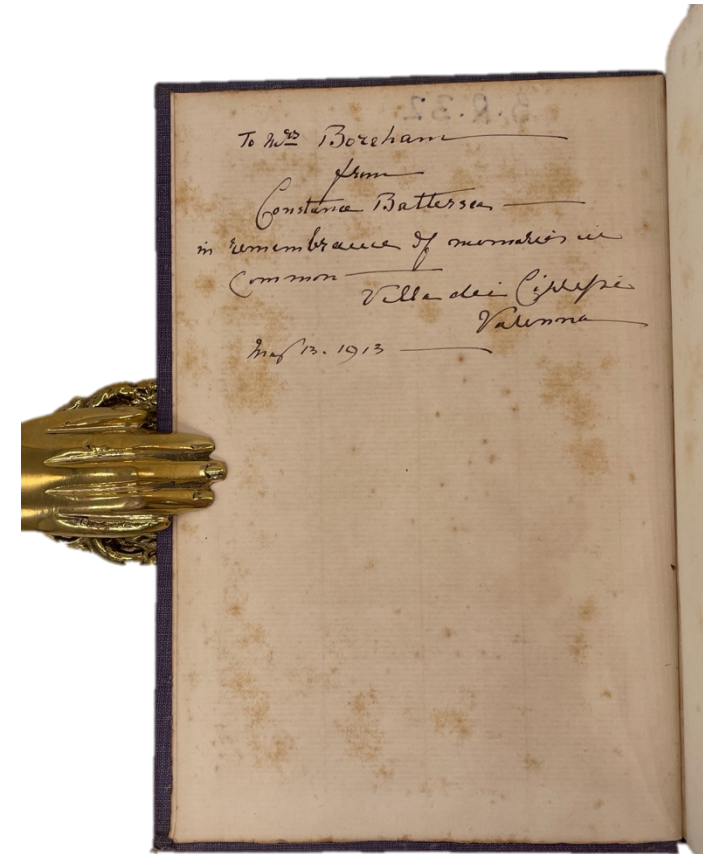 B.R.32
To Mrs Boreham
from
Constance Battersea
in remembrance of memories in
Common
Villa dei Cipressi
Varenna
May 13. 1913